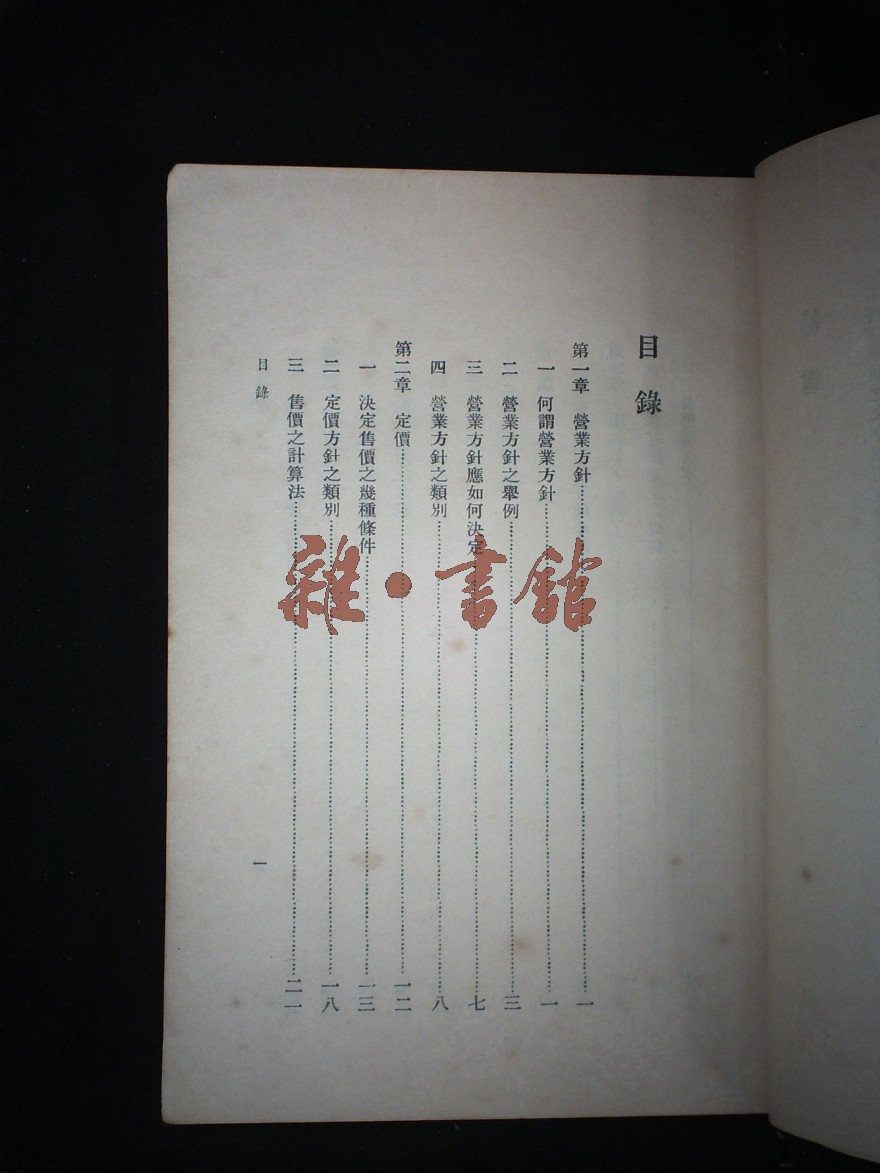 目錄
第一章 營業方針……一
一 何謂營業方針……一
二 營業方針之舉例……三
三 營業方針應如何決定……七
四 營業方針之類別……八
第二章 定價……一二
一 決定售價之幾種條件……一三
二 定價方針之類別……一八
三 售價之計算法……二一
目錄
一
雜·書館